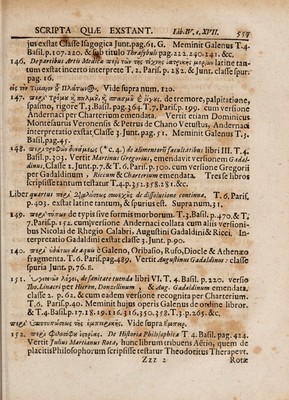 SCRIPTA QUÆ EXSTANT. Lib. IV. c. XVII. 559
jus exstat Classe Isagogica Junt. pag. 61. G. Meminit Galenus T. 4.
Basil. p. 107. 220. & sub titulo Thrasybuli pag. 222. 240. 241. &c.
146. Departibus Artis Medicæ περὶ τῶν τῆς τέχνης ἰατρικῆς μερῶν latine tan-
tum exstat incerto interprete T. 2. Paris. p. 282. & Junt. classe spur.
pag. 16.
εἰς τὸν Τίμαιον Vide supra num. 120.
147. περὶ τρόμου καὶ παλμοῦ, καὶ σπασμοῦ καὶ ῥίγους. de tremore, palpitatione,
spasmo, rigore T. 3. Basil. pag. 364. T. 7. Paris. p. 199. cum versione
Andernaci per Charterium emendata. Vertit etiam Dominicus
Montesaurus Veronensis & Petrus de Chano Vetustus, Andernaci
interpretatio exstat Classe 3. Junt. pag. 51. Meminit Galenus T. 3.
Basil. pag. 45.
148. περὶ τροφῶν δυνάμεως (*c. 4.) de alimentorum facultatibus libri III. T. 4.
Basil. p. 303. Vertit Martinus Gregorius, emendavit versionem Gadal-
dinus, Classe 2. Junt. p. 7. & T. 6. Paris. p. 300. cum versione Gregorii
per Gadaldinum, Riccum & Charterium emendata. Tres se libros
scripsisse testatum T. 4. p. 351. 358. 281. &c.
Liber quartus de dissolutione continua. T. 6. Paris.
p. 403. exstat latine tantum, & spurius est. Supra num. 31.
149. περὶ τύπων de typis sive formis morborum. T. 3. Basil. p. 470. & T.
7. Paris. p. 152. cum versione Andernaci collata cum aliis versioni-
bus Nicolai de Rhegio Calabri, Augustini Gadaldini & Ricci. In-
terpretatio Gadaldini exstat classe 3. Junt. p. 90.
150. περὶ ὕδατος de aqua è Galeno, Oribasio, Rufo, Diocle & Athenæo
fragmenta. T. 6. Paris. pag. 489. Vertit Augustinus Gadaldinus: classe
spuria Junt. p. 76. B.
151. Ὑγιεινοὶ λόγοι, de sanitate tuenda libri VI. T. 4. Basil. p. 220. versio
Tho. Linacri per Hieron. Donzellinum & Aug. Gadaldinum emendata,
classe 2. p. 62. & cum eadem versione recognita per Charterium.
T. 6. Paris. p. 40. Meminit hujus operis Galenus de ordine libror.
& T. 4. Basil. p. 17. 18. 19. 116. 516. 350. 358. T. 3. p. 265. &c.
περὶ Ὑποτυπώσεως τῆς ἐμπειρικῆς. Vide supra
152. περὶ Φιλοσόφου ἱστορίας. De Historia Philosophica T. 4. Basil. pag. 424.
Vertit Julius Martianus Rota, hunc librum tribuens Aëtio, quem de
placitis Philosophorum scripsisse testatur Theodoritus Therapevt.
Zzz 2 Rotæ